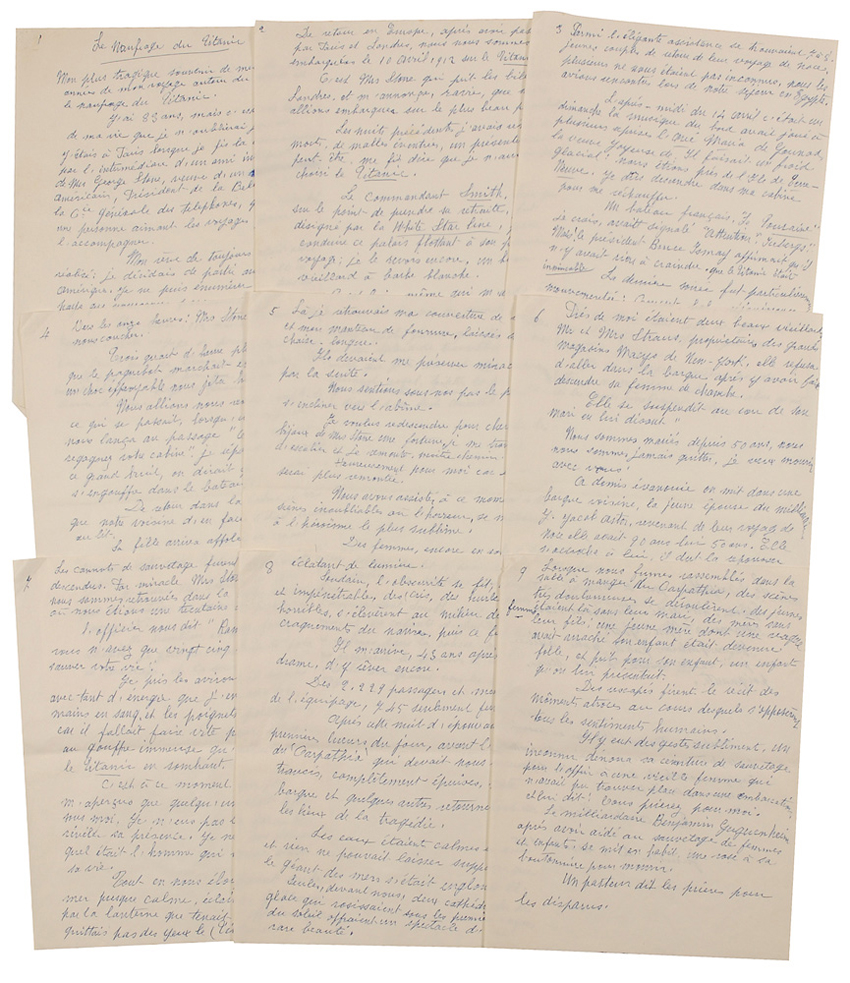 1
Le Naufrage du Titanic
Mon plus tragique souvenir de mes
années de mon voyage autour du
le naufrage du Titanic.
J'ai 83 ans, mais s'es
de ma vie que je n'oublierai j
J'étais à Paris lorsque je fis la
par l'intermédiaire d'un ami in
de Mrs George Stone, veuve d'un
américain, Président de la Bel
la Cie Générale des téléphones,
une personne aimant les voyages
l'accompagner.
Mon rêve de toujours
réalisé; je décidais de partir au
Amérique. Je ne puis énumérer
2
De retour en Europe, après avoir pas
par Paris et Londres, nous nous sommes
embarquées le 10 avril 1912 sur le Titanic
C'est Mrs Stone qui prit les bil
Londres, et m'annonça, ravie, que
allions embarquer sur le plus beau p
Les nuits précédentes j'avais
morts, de malles éventrées, un presente
peut-être, me fit dire que je n'au
choisi le Titanic.
Le Commandant Smith,
sur le point de prendre sa retraite,
désigné par la White Star line,
conduire ce palais flottant à son p
voyage; je le revois encore, un b
vieillard à barbe blanche.
même qui
3
Parmi l'élégante assistance se trouvaient 7 à 8
jeunes couples de retour de leur voyage de noce,
plusieurs ne nous étaient pas inconnus, nous les
avions rencontrés lors de notre séjour en Egypte.
L'après-midi du 14 avril c'était un
dimanche la musique du bord avait joué à
plusieurs reprises l'Avé Maria de Gounod,
la veuve Joyeuse. Il faisait un froid
glacial, nous étions près de l'Ile de Terre-
Neuve. Je dus descendre dans ma cabine
pour me réchauffer.
Un bateau français, "La Touraine"
je crois, avait signalé "Attention" "Icebergs"
Mais le président Bruce Ismay affirmait qu'il
n'y avait rien à craindre, que le Titanic était
insubmersible
La dernière soirée fut particulièrem
mouvementée!
4
Vers les onze heures: Mrs Stone
nous coucher.
Trois quart d'heure pl
que le paquebot marchait
un choc effroyable nous jeta
Nous allions nous
ce qui se passait, lorsque
nous lança au passage "
regagnez votre cabine". Je
ce grand bruit, on dirait
s'engouffre dans le bateau
De retour dans la
que notre voisine d'en face
au lit.
Sa fille arriva affolé
5
Là je retrouvais ma couverture de
et mon manteau de fourrure, laissés
chaise-longue.
Ils devaient me préserver
par la suite.
Nous sentions sous nos pas le p
s'incliner vers l'abîme.
Je voulus redescendre pour cher
bijoux de Mrs Stone une fortune, je me tro
d'escalier et je remonte, mi-chemin
heureusement pour moi car
serai plus remontée.
Nous avons assisté, à ce mom
scènes inoubliables où l'horreur, se m
à l'héroïsme le plus sublime.
Des femmes, encore en so
6
Près de moi étaient deux beaux vieillards
Mr et Mrs Straus, propriétaires des grands
magasins Macys de New-York, elle refusa
d'aller dans la barque après y avoir fait
descendre sa femme de chambre.
Elle se suspendit au cou de son
mari en lui disant "
Nous sommes mariés depuis 50 ans, nous
nous sommes jamais quittés, je veux mourir
avec vous"
A demis évanouie on mit dans une
barque voisine, la jeune épouse du milliardaire
J. Jacob Astor, revenant de leur voyage de
noce elle avait 20 ans lui 50 ans. Elle
s'accrocha à lui, il dut la repousser
7
Les canots de sauvetage furent
descendus. Par miracle Mrs Stone
nous sommes retrouvées dans la
où nous étions une trentaine
L'officier nous dit "Ram
vous n'avez que vingt cinq
sauver votre vie".
Je pris les aviron
avec tant d'énergie que j'en
mains en sang, et les poignets
car il fallait faire vite p
au gouffre immense qu
le Titanic en sombrant
C'est à ce moment
m'aperçus que quelqu'un
mes moi. Je n'ers pas
sa présence. Je n
quel était l'homme qui
sa vie.
Tout en nous éloi
mer presque calme, éclai
par la lanterne que tenait
quittais pas des yeux le
8
éclatant de lumière.
Soudain, l'obscurité se fit,
et impénétrable, des cris, des hurle
horribles, s'élevèrent au milieu de
craquements du navire, puis ce f
Il m'arrive, 43 ans après
drame, d'y rêver encore.
Des 2.229 passagers et mem
de l'équipage, 745 seulement fur
Après cette nuit d'épouvante
premières lueurs du jour, avant l'
du Carpathia qui devait nous
transies, complètement épuisées,
barque et quelques autres retourne
les lieux de la tragédie.
Les eaux étaient calmes
et rien ne pouvait laisser suppo
le géant des mers s'était englou
Seules, devant nous, deux cathéd
glace qui rosissaient sous les premie
du soleil offraient un spectacle de
rare beauté.
9
Lorsque nous fumes rassemblés dans la
salle à manger du Carpathia, des scènes
très douloureuses se déroulèrent: des jeunes
femmes étaient là sans leur mari, des mères sans
leur fils; une jeune mère dont une vague
avait arraché son enfant était devenue
folle, et prit pour son enfant, un enfant
qu'on lui présentait.
Des rescapés firent le récit des
moments atroces au cours desquels s'opposèrent
tous les sentiments humains.
Il y eut des gestes sublimes, un
inconnu dénoua sa ceinture de sauvetage
pour l'offrir à une vieille femme qui
n'avait pu trouver place dans une embarcation,
et lui dit: Vous prierez pour moi.
Le milliardaire Benjamin Guggenheim
après avoir aidé au sauvetage de femmes
et enfants, se mit en habit, une rose à sa
boutonnière pour mourir.
Un pasteur dit les prières pour
les disparus.